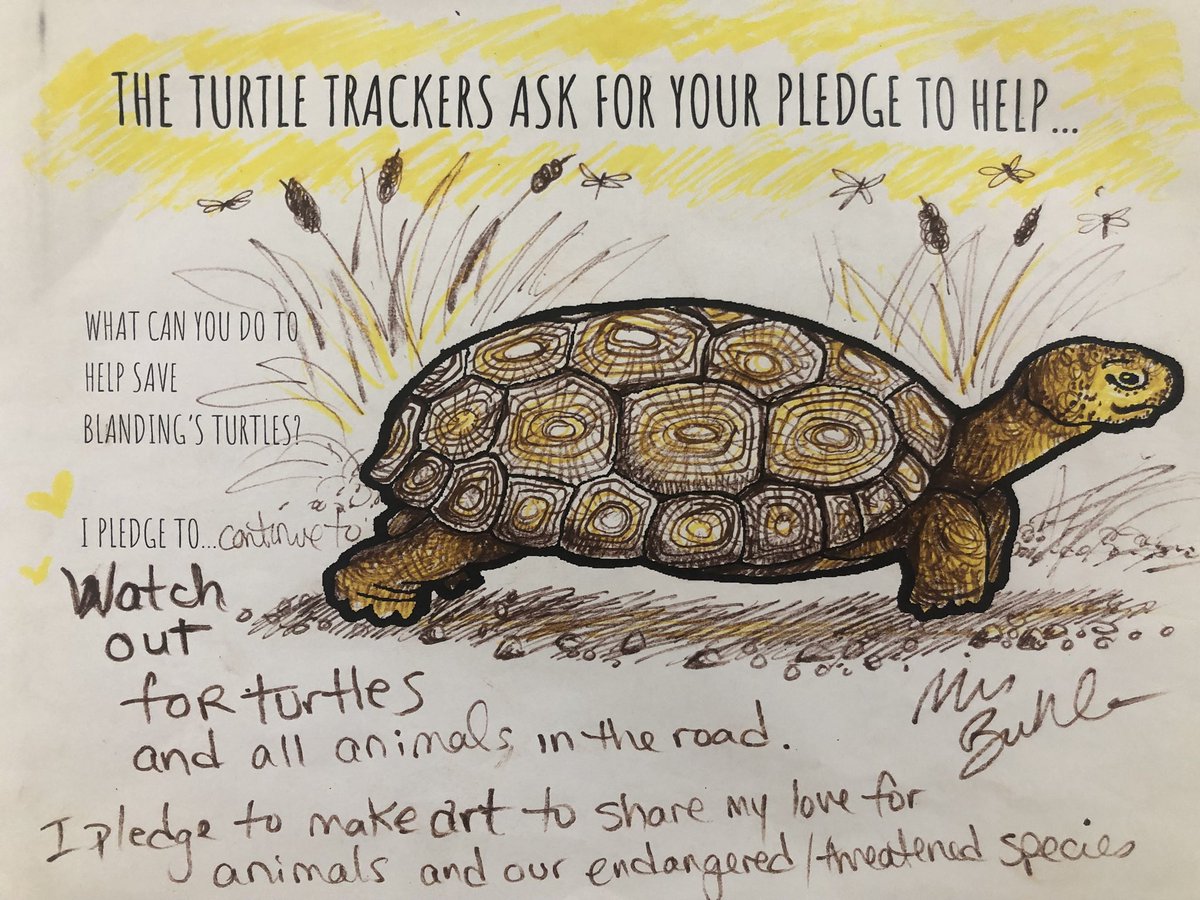 THE TURTLE TRACKERS ASK FOR YOUR PLEDGE TO HELP...
WHAT CAN YOU DO TO
HELP SAVE
BLANDING'S TURTLES?
I PLEDGE TO... continue to
Watch
out
for turtles
and all animals in the road.
I pledge to make art to share my love for
animals and our endangered/threatened species